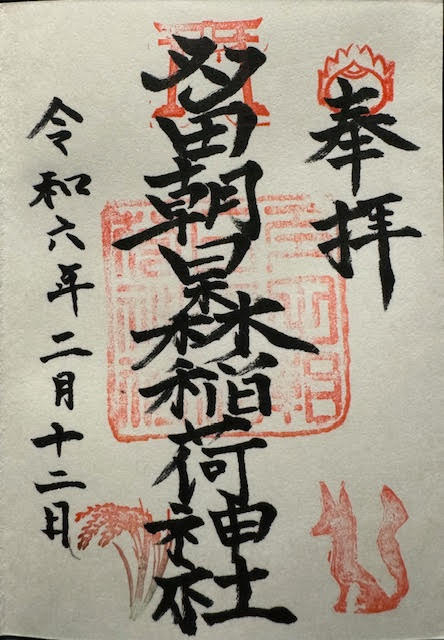 奉拝
多田朝日森稲荷神社
令和六年二月十二日